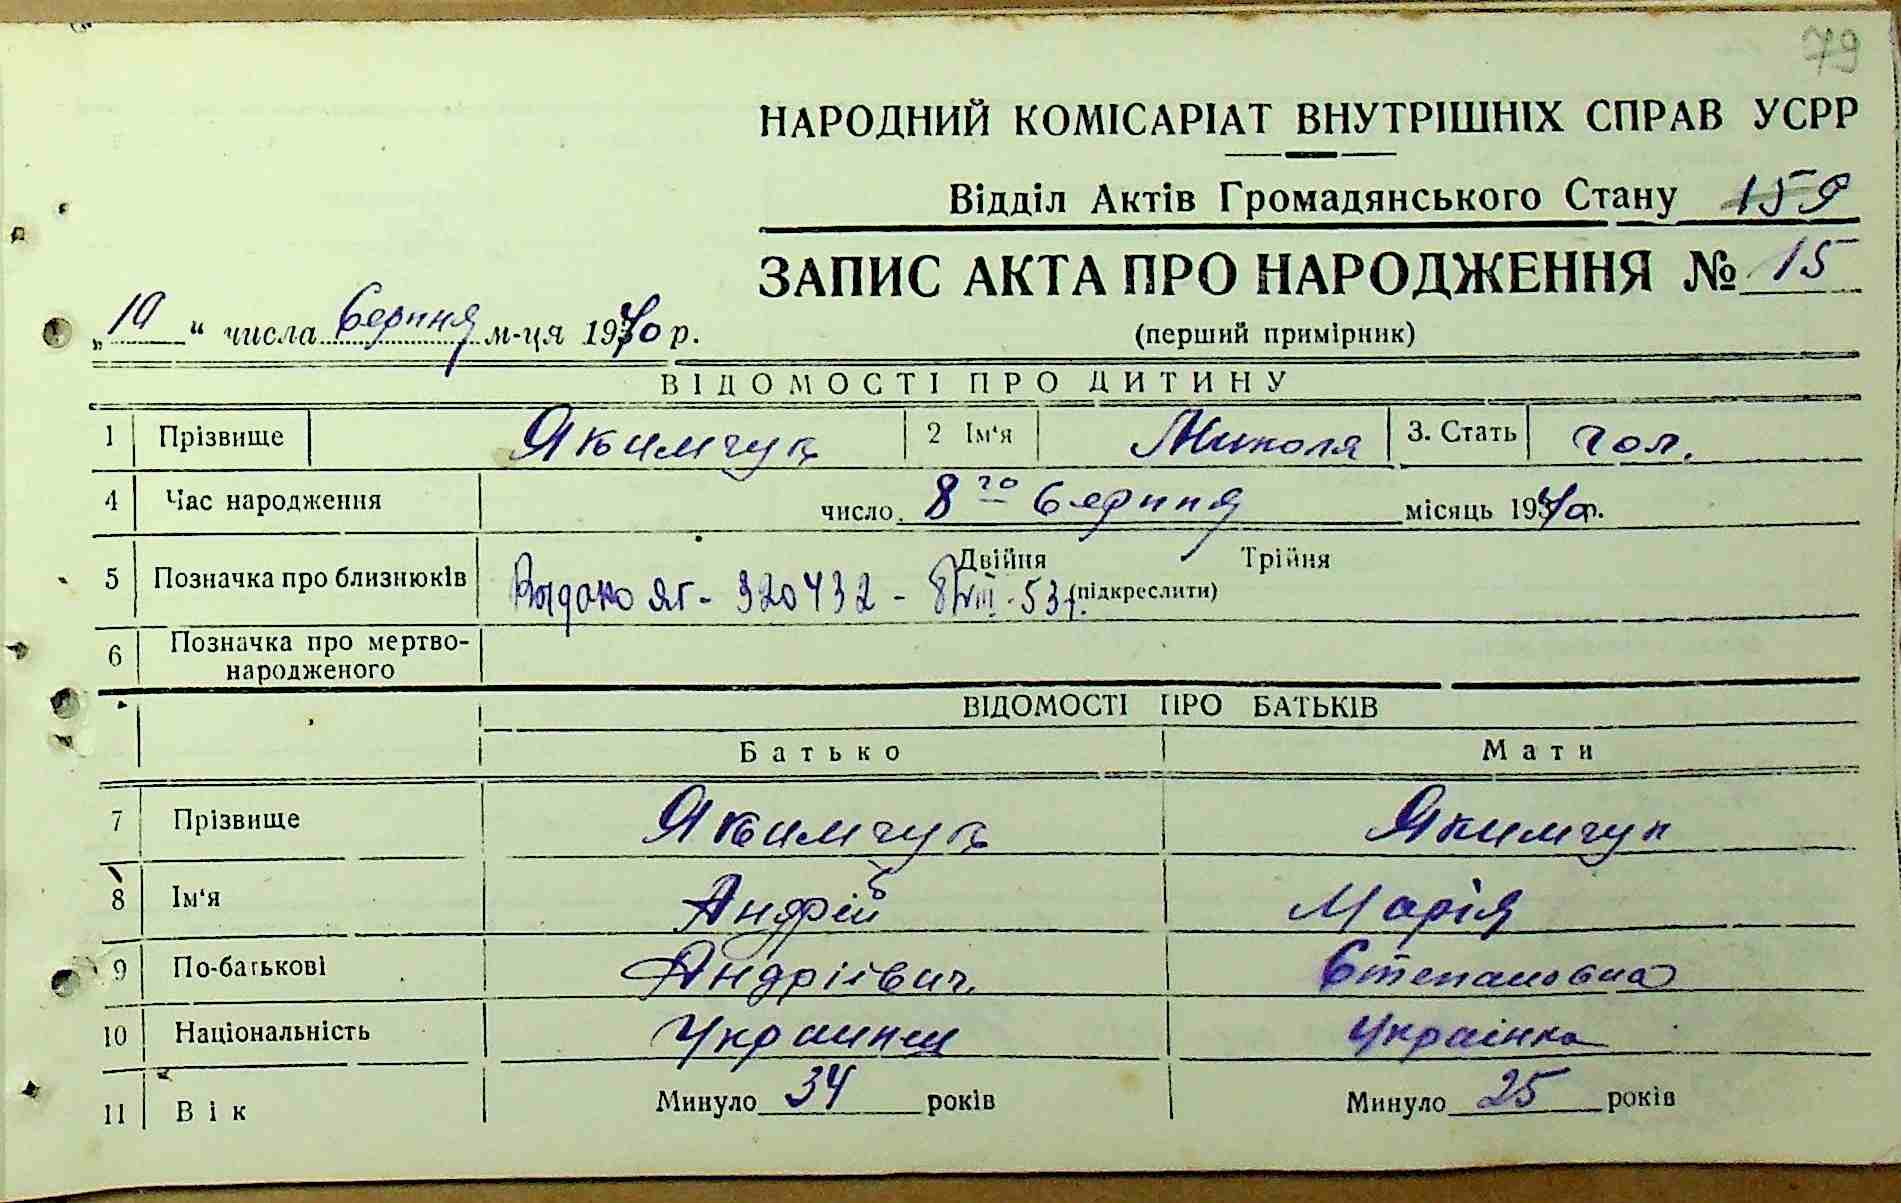 79
НАРОДНИЙ КОМІСАРІАТ ВНУТРІШНІХ СПРАВ УСРР
Відділ Актів Громадянського Стану 159
ЗАПИС АКТА ПРО НАРОДЖЕННЯ № 15
(перший примірник)
„10“ числа Серпня м-ця 1940 р.
ВІДОМОСТІ ПРО ДИТИНУ
1 Прізвище Якимчук 2 Ім'я Микола 3. Стать чол.
4 Час народження число 8го Серпня місяць 1940 р.
5 Позначка про близнюків Двійня Трійня
Выдано ЯГ - 320432 - 8/VIII-53 г. (підкреслити)
6 Позначка про мертво-
народженого
ВІДОМОСТІ ПРО БАТЬКІВ
Батько Мати
7 Прізвище Якимчук Якимчук
8 Ім'я Андрій Марія
9 По-батькові Андріївич Степановна
10 Національність Украинец Українка
11 Вік Минуло 34 років Минуло 25 років